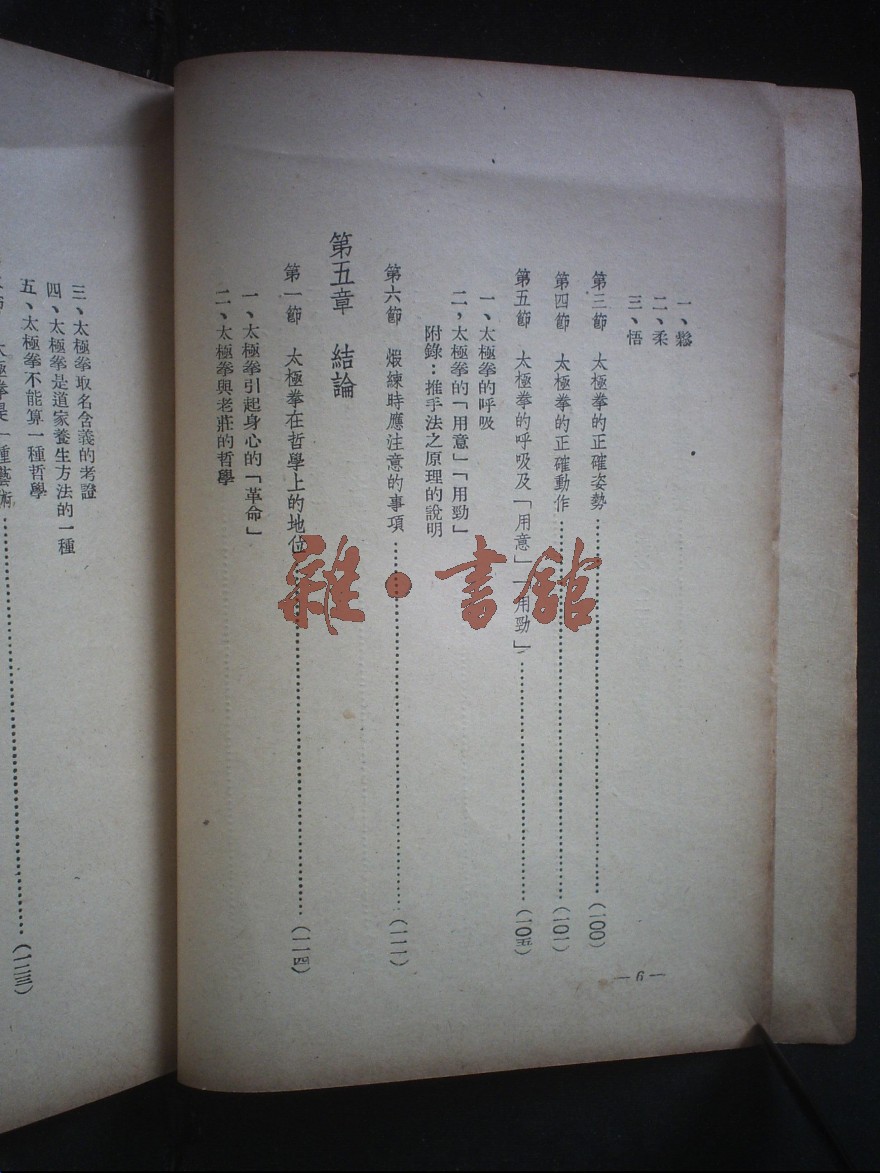 一、鬆
二、柔
三、悟
第三節 太極拳的正確姿勢……(一〇〇)
第四節 太極拳的正確動作……(一〇一)
第五節 太極拳的呼吸及「用意」「用勁」……(一〇五)
一、太極拳的呼吸
二，太極拳的「用意」「用勁」
附錄：推手法之原理的說明
第六節 煅練時應注意的事項……(一一一)
第五章 結論
第一節 太極拳在哲學上的地位……(一一四)
一、太極拳引起身心的「革命」
二、太極拳與老莊的哲學
— 6 —
三、太極拳取名含義的考證
四、太極拳是道家養生方法的一種
五、太極拳不能算一種哲學
太極拳是一種藝術……(一二三)
雜·書館